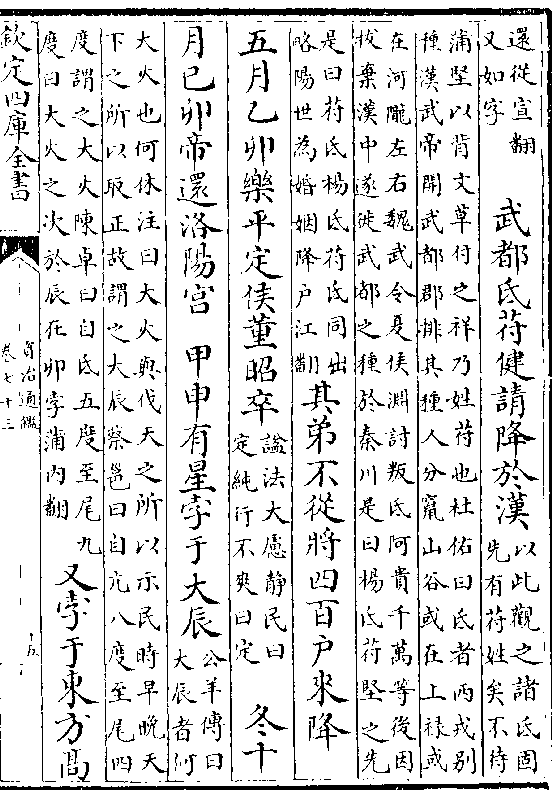 還從宣翻
又如字
武都氐苻健請降於漢
以此觀之諸氐固
先有苻姓矣不待
蒲堅以背文草付之祥乃姓苻也杜佑曰氐者西戎别
種漢武帝開武都郡排其種人分竄山谷或在上禄或
在河隴左右魏武令夏侯淵討叛氐阿貴千萬等後因
拔棄漢中遂徙武都之種於秦川是曰楊氐苻堅之先
是曰苻氐楊氐苻氐同出
略陽世為婚姻降户江翻
其弟不從將四百户來降
五月乙卯樂平定侯董昭卒
諡法大慮静民曰
定純行不爽曰定
冬十
月已卯帝還洛陽宫 甲申有星孛于大辰
公羊傳曰
大辰者何
大火也何休注曰大火與伐天之所以示民時早晚天
下之所以取正故謂之大辰蔡邕曰自亢八度至尾四
度謂之大火陳卓曰自氐五度至尾九
度曰大火之次於辰在卯孛蒲内翻
又孛于東方髙
欽定四庫全書
資治通鑑
卷七十三
十五